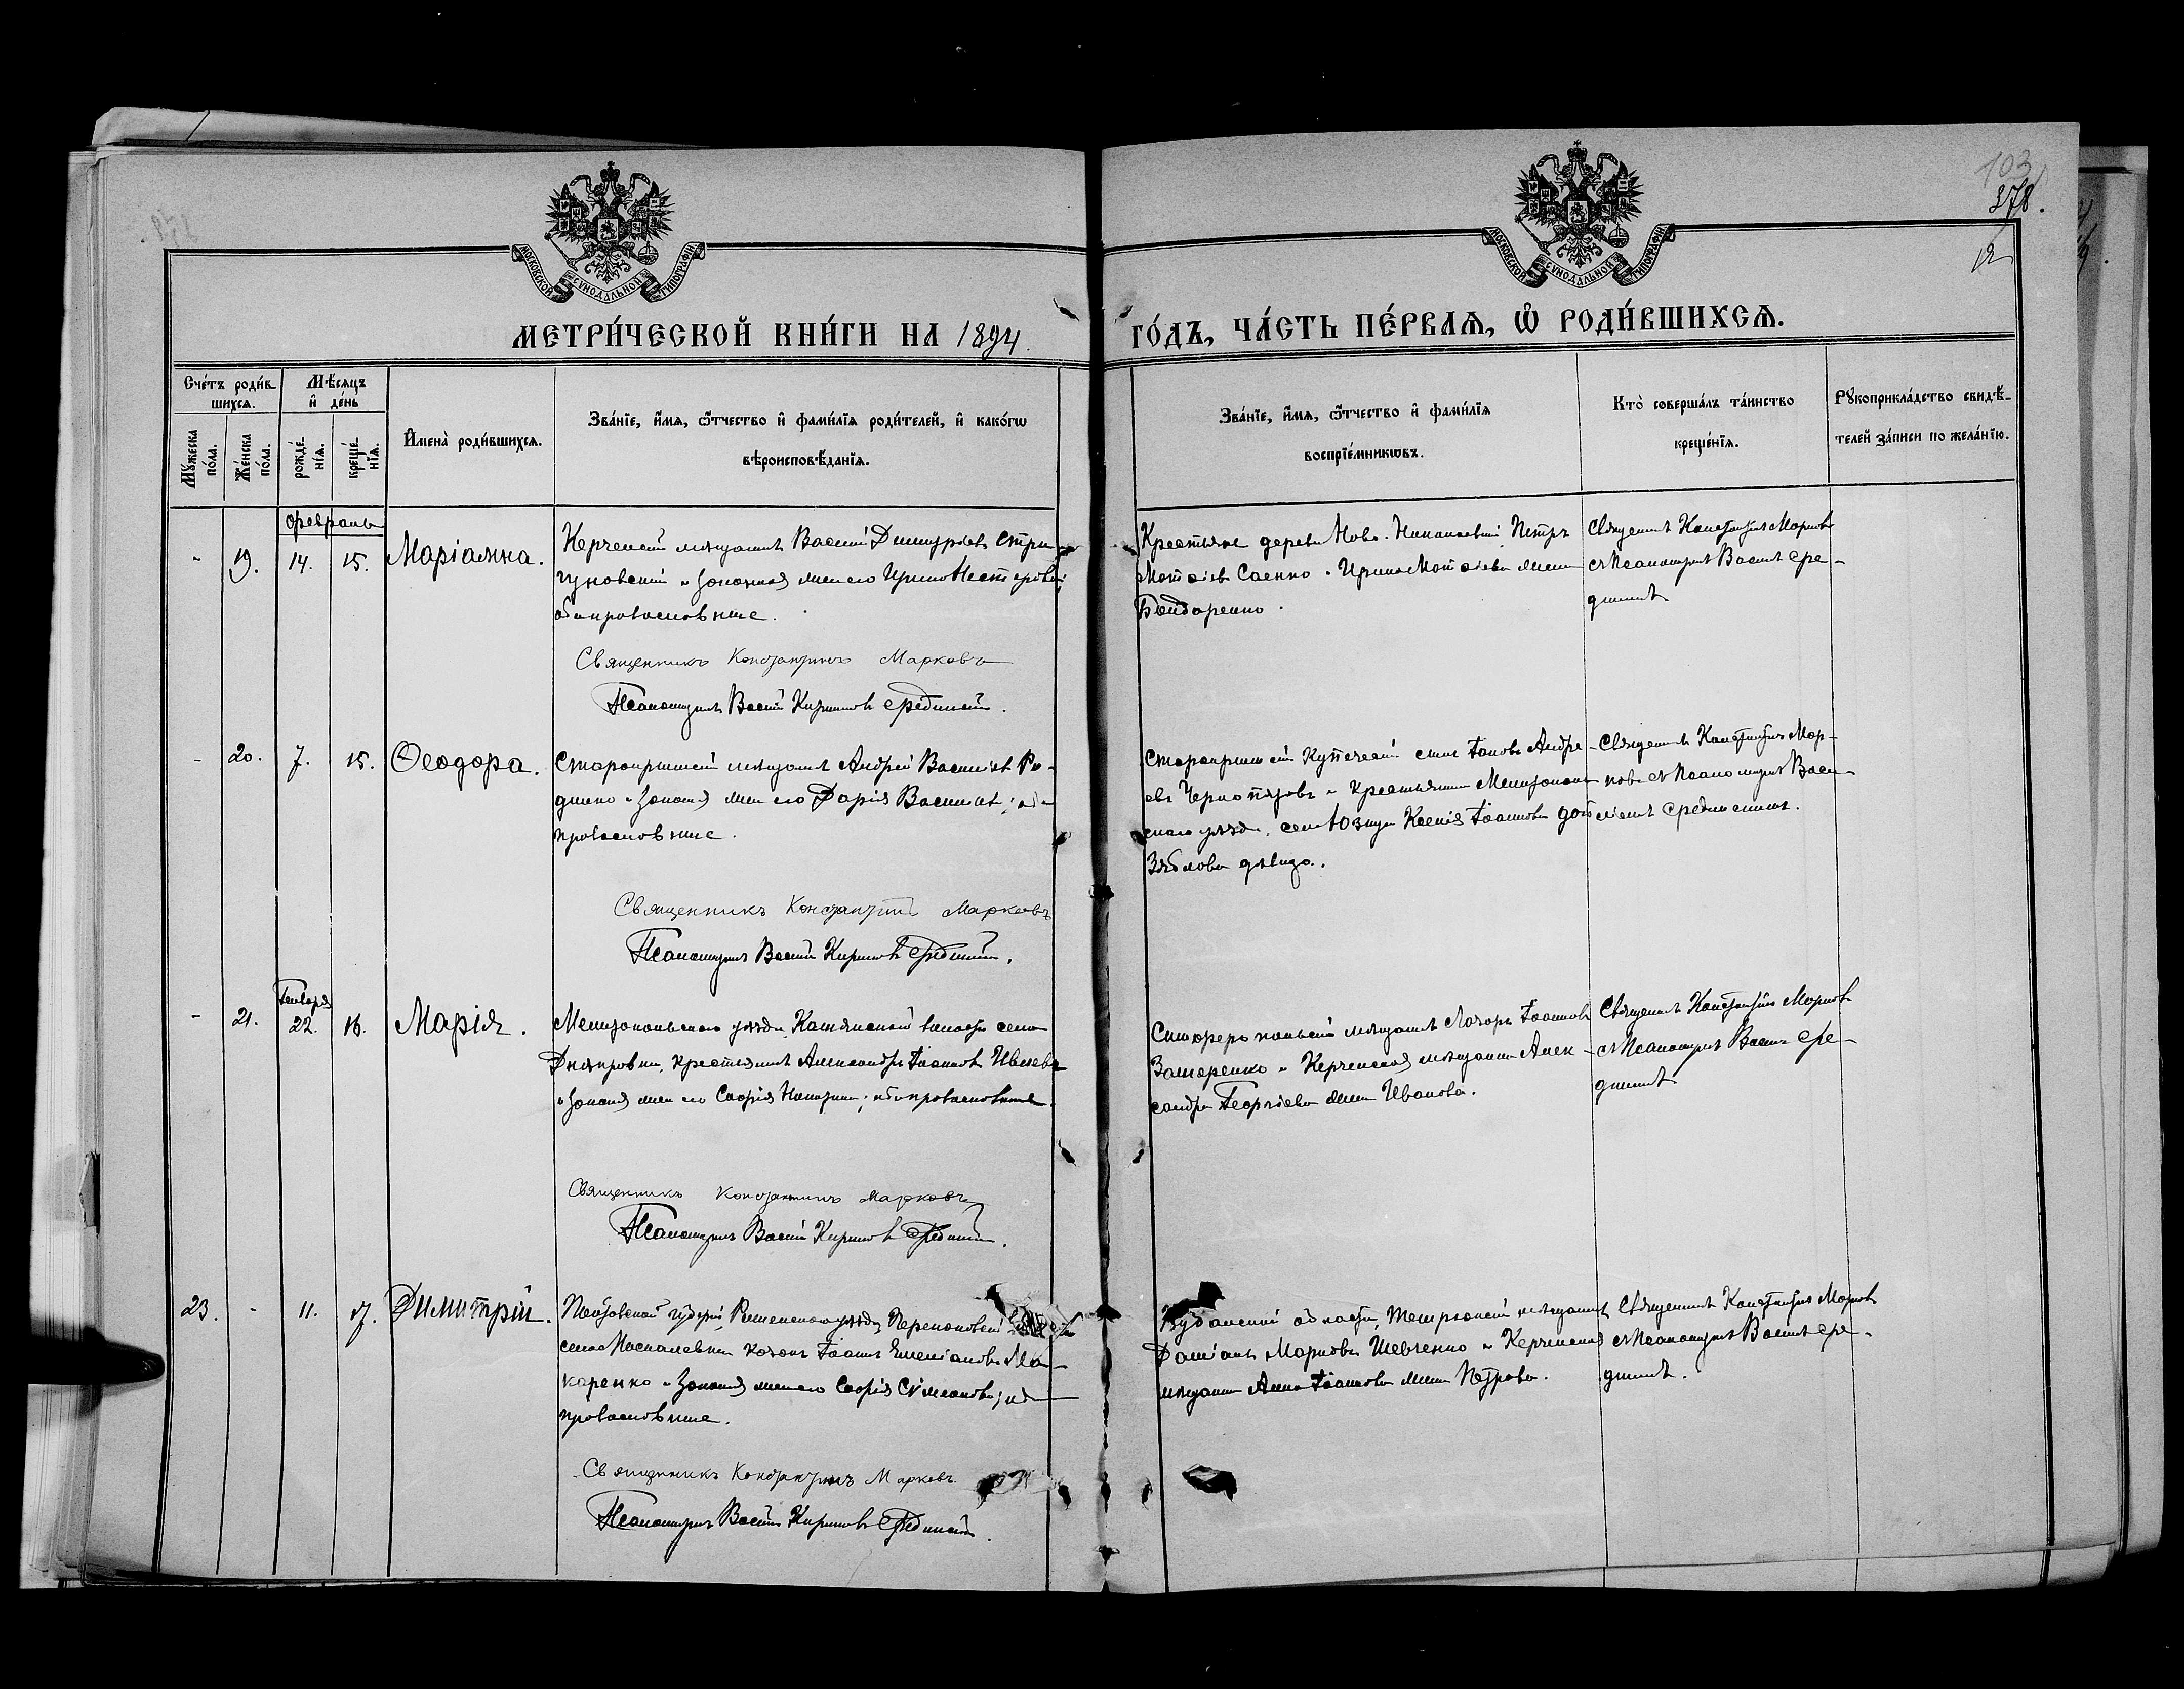 103
378.
МОСКОВСКОЙ СѴНОДАЛЬНОЙ ТИПОГРАФІИ
МОСКОВСКОЙ СѴНОДАЛЬНОЙ ТИПОГРАФІИ
МЕТРИ́ЧЕСКОЙ КНИ́ГИ НА 1894.
ГО́ДЪ, ЧА́СТЬ ПЕ́РВАѦ, Ѽ РОДИ́ВШИХСѦ.
Сче́тъ роди́в-
шихсѧ.
Мꙋ́жеска по́ла.
Же́нска по́ла.
Мѣ́сѧцъ
и҆ де́нь
рожде́-нїѧ.
креще́-нїѧ.
И҆мена̀ роди́вшихсѧ.
Зва́нїе, и҆́мѧ, ѻ҆́тчество и҆ фами́лїѧ роди́телей, и҆ како́гѡ
вѣроисповѣ́данїѧ.
Зва́нїе, и҆́мѧ, ѻ҆́тчество и҆ фами́лїѧ
воспрїе́мникѡвъ.
Кто̀ соверша́лъ та́инство
креще́нїѧ.
Рꙋкоприкла́дство свидѣ́-
телей за́писи по жела́нїю.
февраль
- 19. 14. 15. Маріанна.
Керченскій мѣщанинъ Василій Димитріевъ Стри-
гуновскій и законная жена его Ирина Нестерова;
оба православные.
Священникъ Константинъ Марковъ
Псаломщикъ Василій Кириловъ Срединскій.
Крестьяне деревни Ново-Николаевки Петръ
Саенко и Ирина
Бондаренко.
Священникъ Константинъ Марковъ
съ Псаломщикъ Василій Сре-
динскій
- 20. 7. 15. Ѳеодора.
Старокрымскій мѣщанинъ Андрей Васильевъ
и законная жена его Дарія Васильева; оба
православные.
Священникъ Константинъ Марковъ
Псаломщикъ Василій Кириловъ Срединскій.
Старокрымскій Купеческій сынъ Іаковъ Андре-
евъ и крестьянка Мелитополь-
скаго уѣзда, села Ксенія Іоаннова дочь
Зяблова дѣвица.
Священникъ Константинъ Мар-
ковъ съ Псаломщикъ Васи-
ліемъ Срединскимъ.
Генваря
- 21. 22. 16. Марія.
Мелитопольскаго уѣзда, Каменской волости села
Днѣпровки, крестьянинъ Александръ Іоанновъ Ивлевъ
и законная жена его Софія; оба православные.
Священникъ Константинъ Марковъ
Псаломщикъ Василій Кириловъ Срединскій.
Симферопольскій мѣщанинъ Лазарь Іоанновъ
и Керченская мѣщанка Алек-
сандра Георгіева жена Иванова.
Священникъ Константинъ Марковъ
съ Псаломщикъ Василій Сре-
динскій
23. - 11. 17. Димитрій.
Полтавской губерніи, уѣзда,
села козакъ Іоаннъ Емеліановъ Ма-
каренко и законная жена его Софія Сѷмеонова; оба
православные.
Священникъ Константинъ Марковъ
Псаломщикъ Василій Кириловъ Срединскій.
Кубанской области, Темрюкскій мѣщанинъ
Даміанъ Марковъ Шевченко и Керченская
мѣщанка Анна Іоаннова жена Петрова.
Священникъ Константинъ Марковъ
съ Псаломщикъ Василій Сре-
динскій.